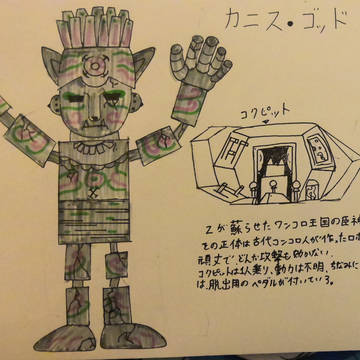 カニス・ゴッド
コクピット
Zが蘇らせたワンコロ王国の巨神
その正体は古代コンコロ人が作ったロボ
頑丈で、どんな攻撃も効かない。
コクピットは1人乗り、動力は不明、ちなみに
は、脱出用のペダルが付いている。